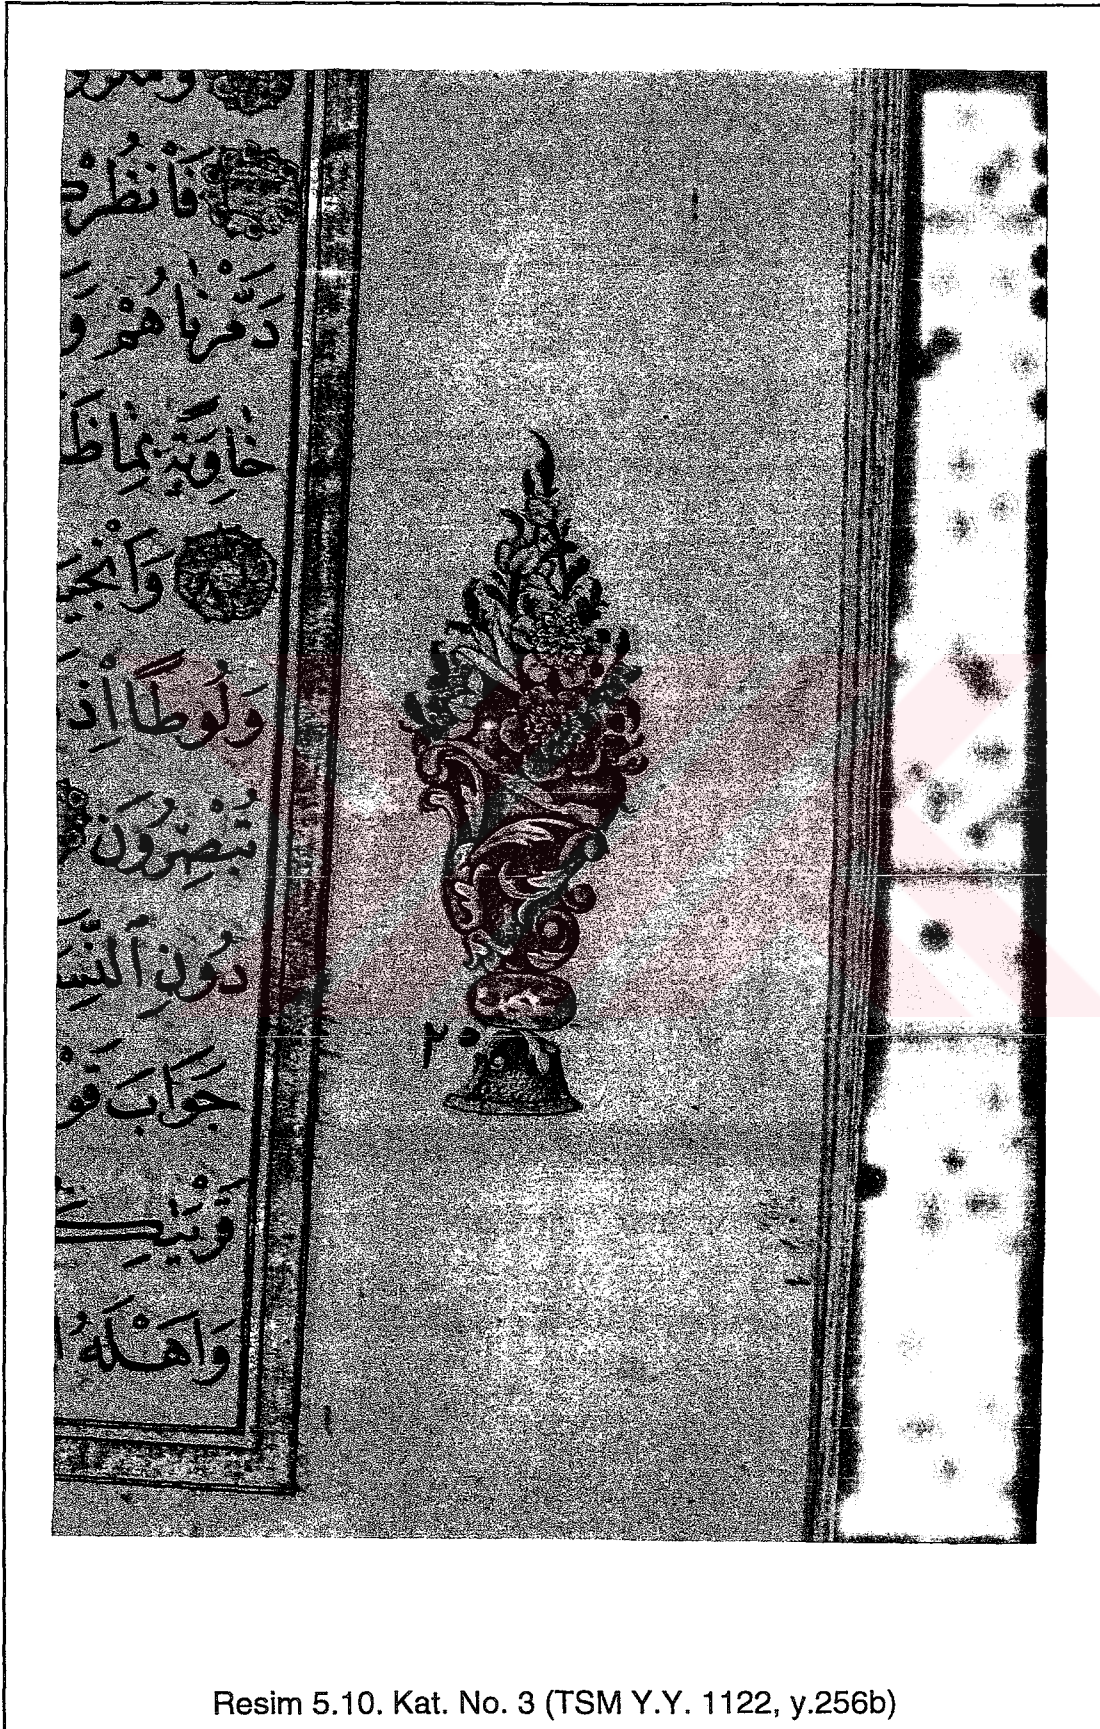 ومكرو
فَانْظُرْ
دَمَّرْنَاهُمْ وَ
خَاوِيَةً بِمَا ظَ
وَاَنْجَيـ
وَلُوطًا اِذْ
تُبْصِرُونَ
دُونِ النِّسَـ
جَوَابَ قَوْ
قَرْيَتِـكـ
وَاَهْلَهُ ا
٢٠
Resim 5.10. Kat. No. 3 (TSM Y.Y. 1122, y.256b)